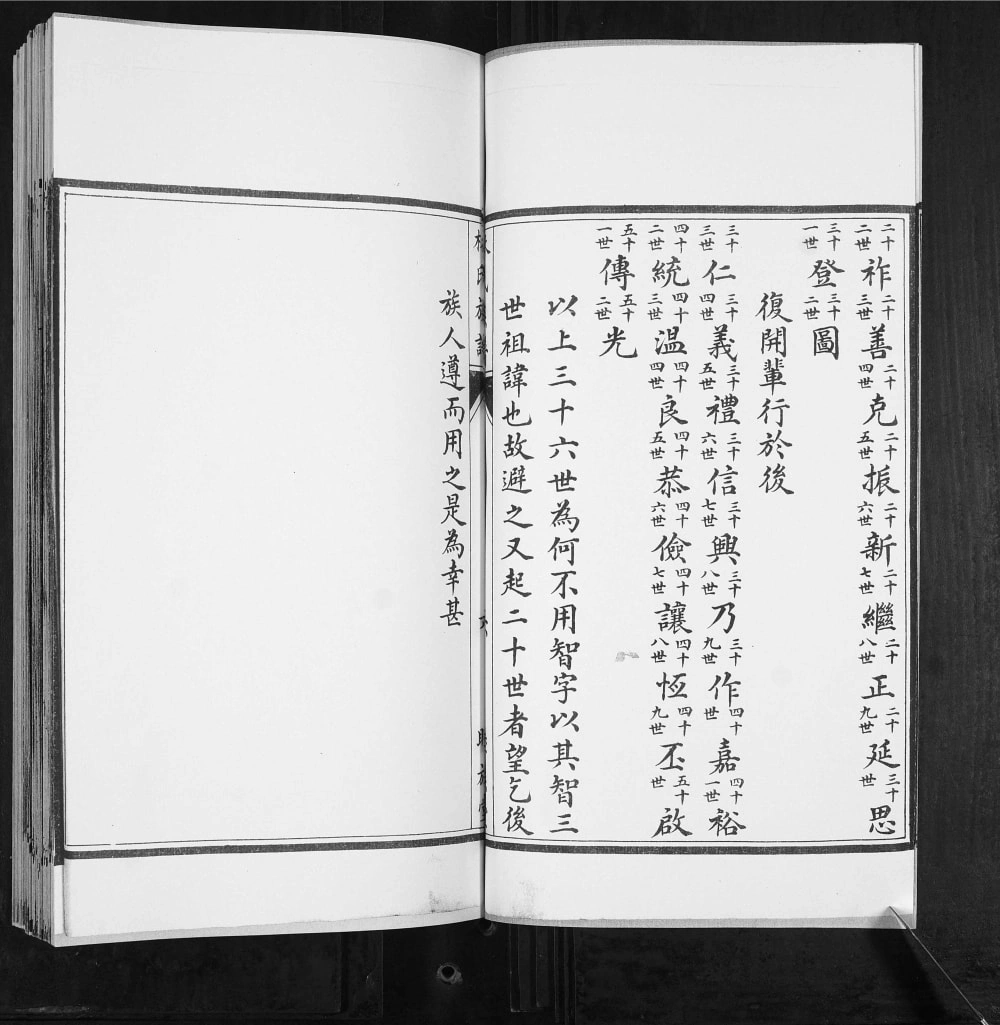 二十二世祚二十三世善二十四世克二十五世振二十六世新二十七世繼二十八世正二十九世延三十世思
三十一世登三十二世圖
復開輩行於後
三十三世仁三十四世義三十五世禮三十六世信三十七世興三十八世乃三十九世作四十世嘉四十一世裕
四十二世統四十三世温四十四世良四十五世恭四十六世儉四十七世讓四十八世恆四十九世丕五十世啟
五十一世傳五十二世光
以上三十六世為何不用智字以其智三
世祖諱也故避之又起二十世者望乞後
氏族譜
族人遵而用之是為幸甚